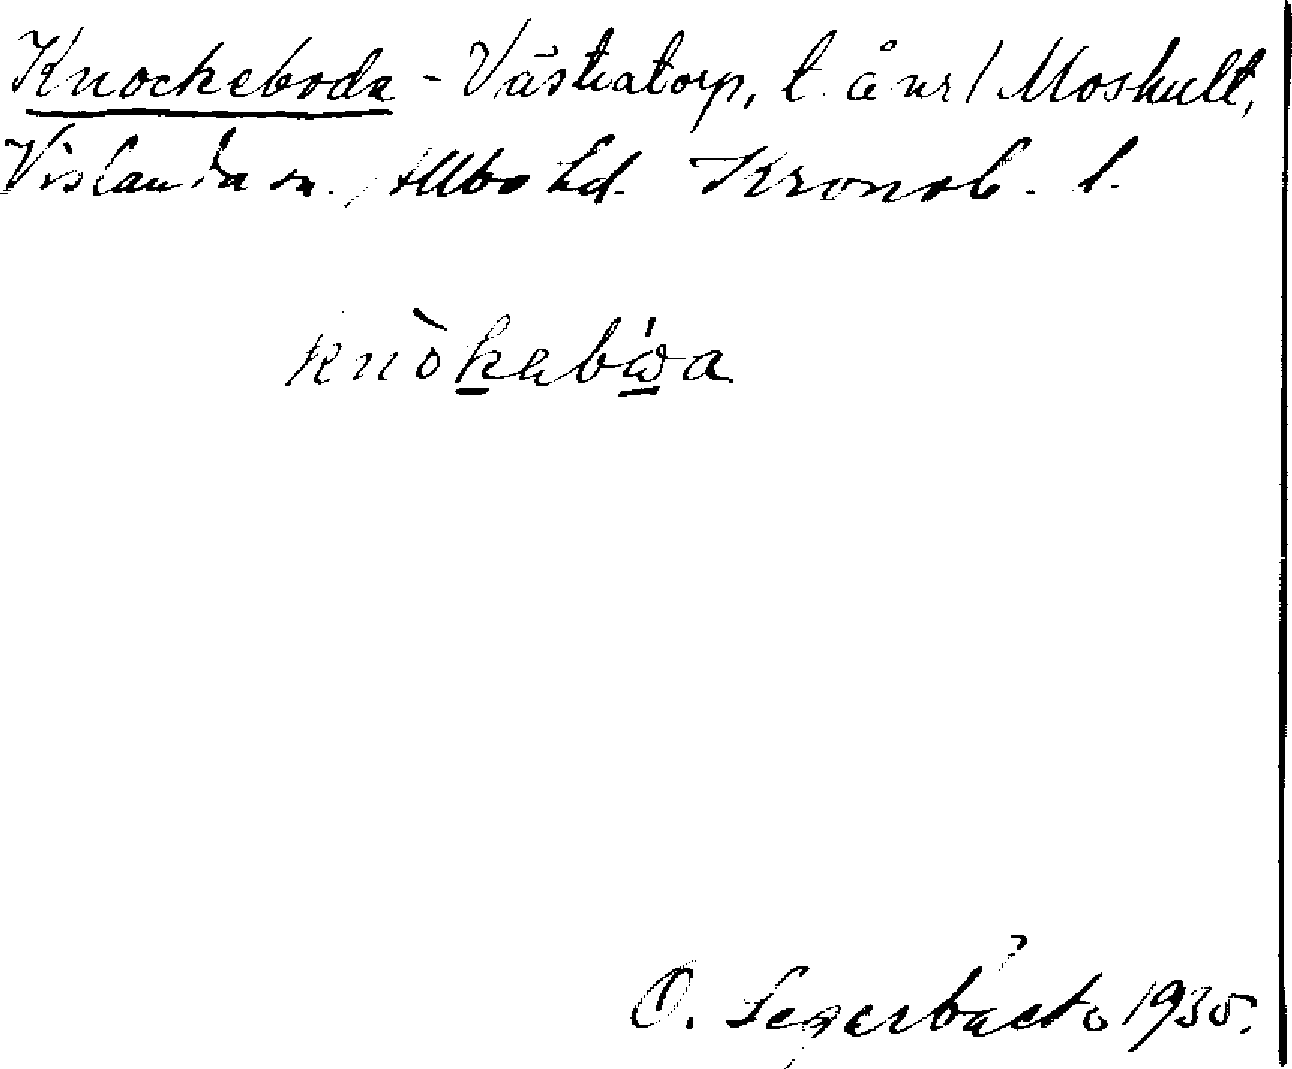 Knockeboda - Västratorp, t. å nr 1 Moshult,
Vislanda sn., Allbo hd. Kronob. l.
knòkabѡ́a
O. Segerbäck 1935.